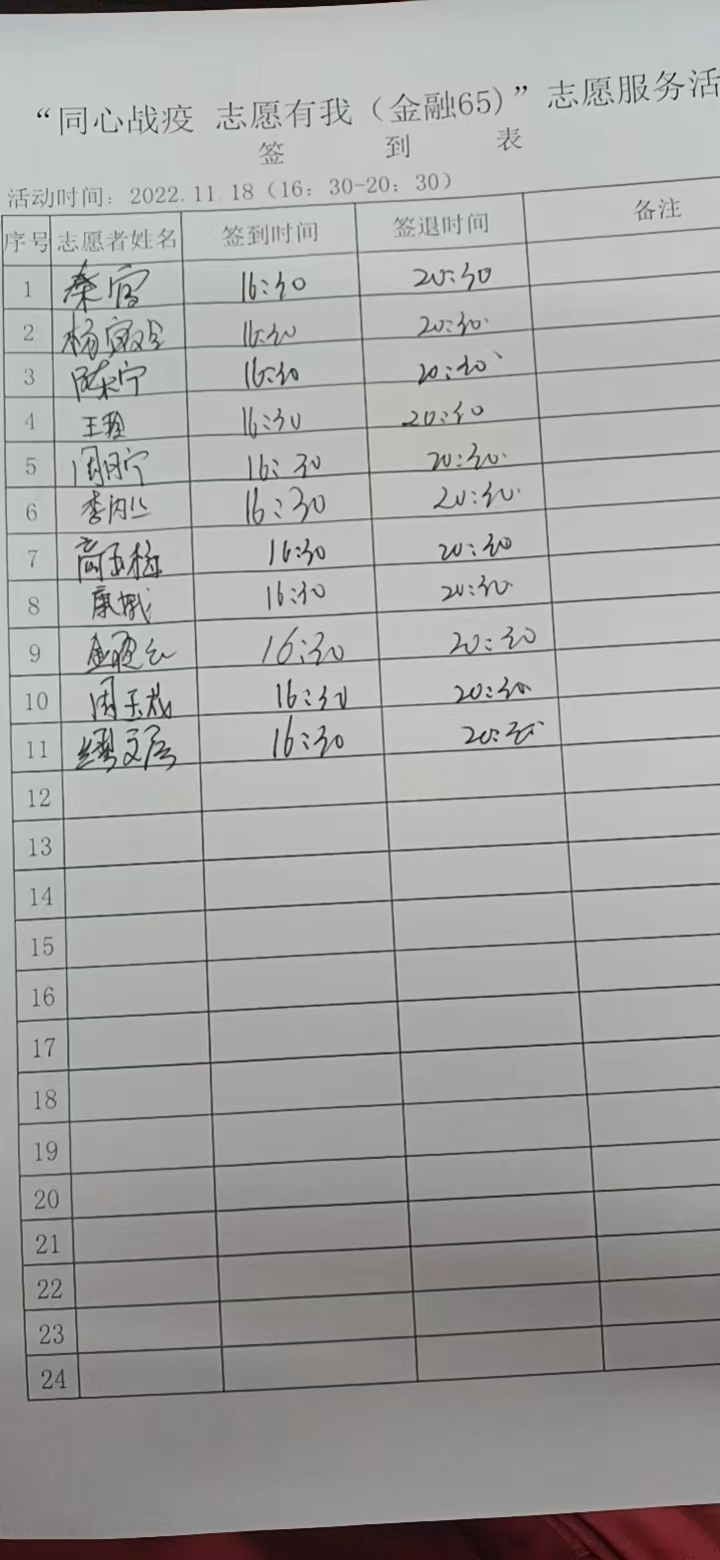 “同心战疫 志愿有我（金融65)”志愿服务活
签 到 表
活动时间：2022.11.18（16：30-20：30）
序号 志愿者姓名 签到时间 签退时间 备注
1 秦宫 16:30 20:30
2 杨 16:30 20:30
3 陈宁 16:30 20:30
4 王 16:30 20:30
5 周丽宁 16:30 20:30
6 李 16:30 20:30
7 高玉梅 16:30 20:30
8 康娥 16:30 20:30
9 金 16:30 20:30
10 周玉成 16:30 20:30
11 16:30 20:30
12
13
14
15
16
17
18
19
20
21
22
23
24